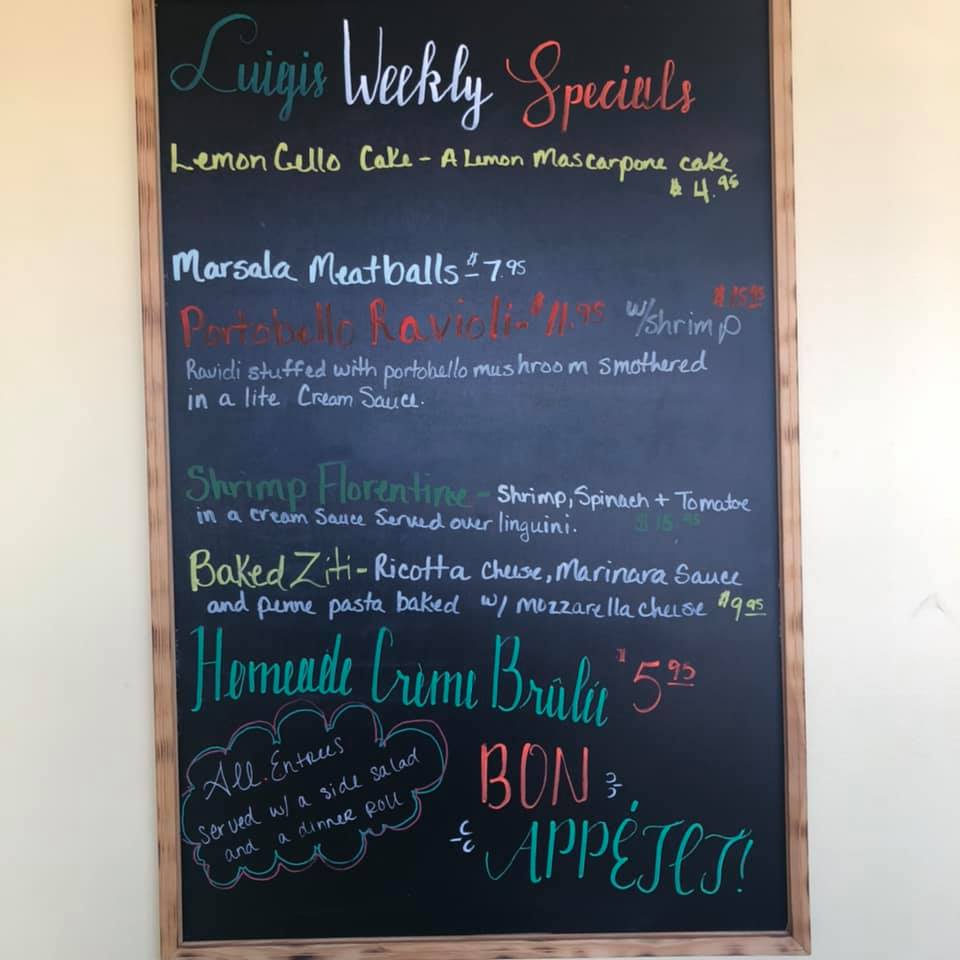 Luigis Weekly Specials
Lemon Cello Cake - A Lemon Mascarpone cake
$4.95
Marsala Meatballs - $7.95
Portobello Ravioli - $11.95 w/shrimp $15.95
Ravioli stuffed with portobello mushroom smothered
in a lite Cream Sauce.
Shrimp Florentine - Shrimp, Spinach + Tomatoe
in a cream Sauce Served over linguini. $15.95
Baked Ziti - Ricotta Cheese, Marinara Sauce
and penne pasta baked w/ mozzarella cheese $9.95
Homeade Crème Brûlée $5.95
All Entrees
served w/ a side salad
and a dinner Roll
BON
APPÉTIT!